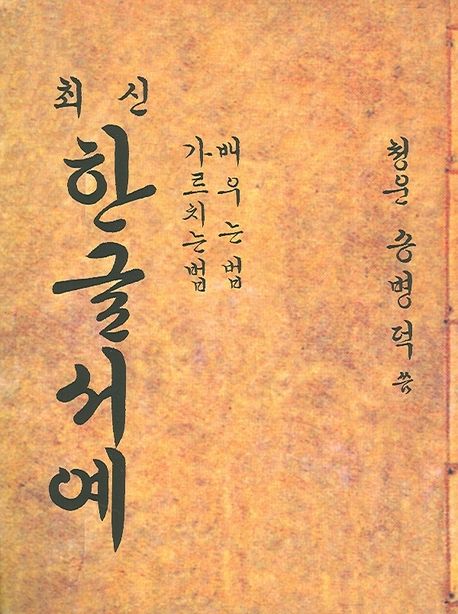 최신
한글서예
배우는법
가르치는법
청운 송병덕 씀